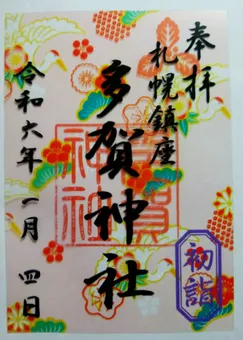 奉拝
札幌鎮座
多賀神社
令和六年一月四日
初詣